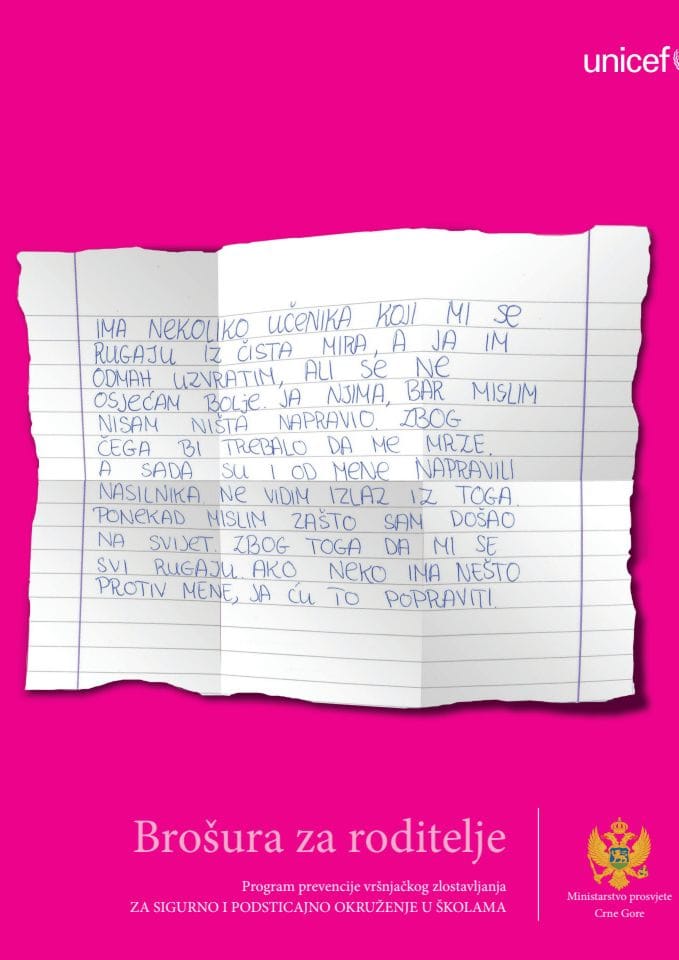 unicef
IMA NEKOLIKO UČENIKA KOJI MI SE
RUGAJU IZ ČISTA MIRA, A JA IM
ODMAH UZVRATIM, ALI SE NE
OSJEĆAM BOLJE. JA NJIMA, BAR MISLIM
NISAM NIŠTA NAPRAVIO. ZBOG
ČEGA BI TREBALO DA ME MRZE.
A SADA SU I OD MENE NAPRAVILI
NASILNIKA. NE VIDIM IZLAZ IZ TOGA.
PONEKAD MISLIM ZAŠTO SAM DOŠAO
NA SVIJET. ZBOG TOGA DA MI SE
SVI RUGAJU. AKO NEKO IMA NEŠTO
PROTIV MENE, JA ĆU TO POPRAVITI.
Brošura za roditelje
Program prevencije vršnjačkog zlostavljanja
ZA SIGURNO I PODSTICAJNO OKRUŽENJE U ŠKOLAMA
Ministarstvo prosvjete
Crne Gore